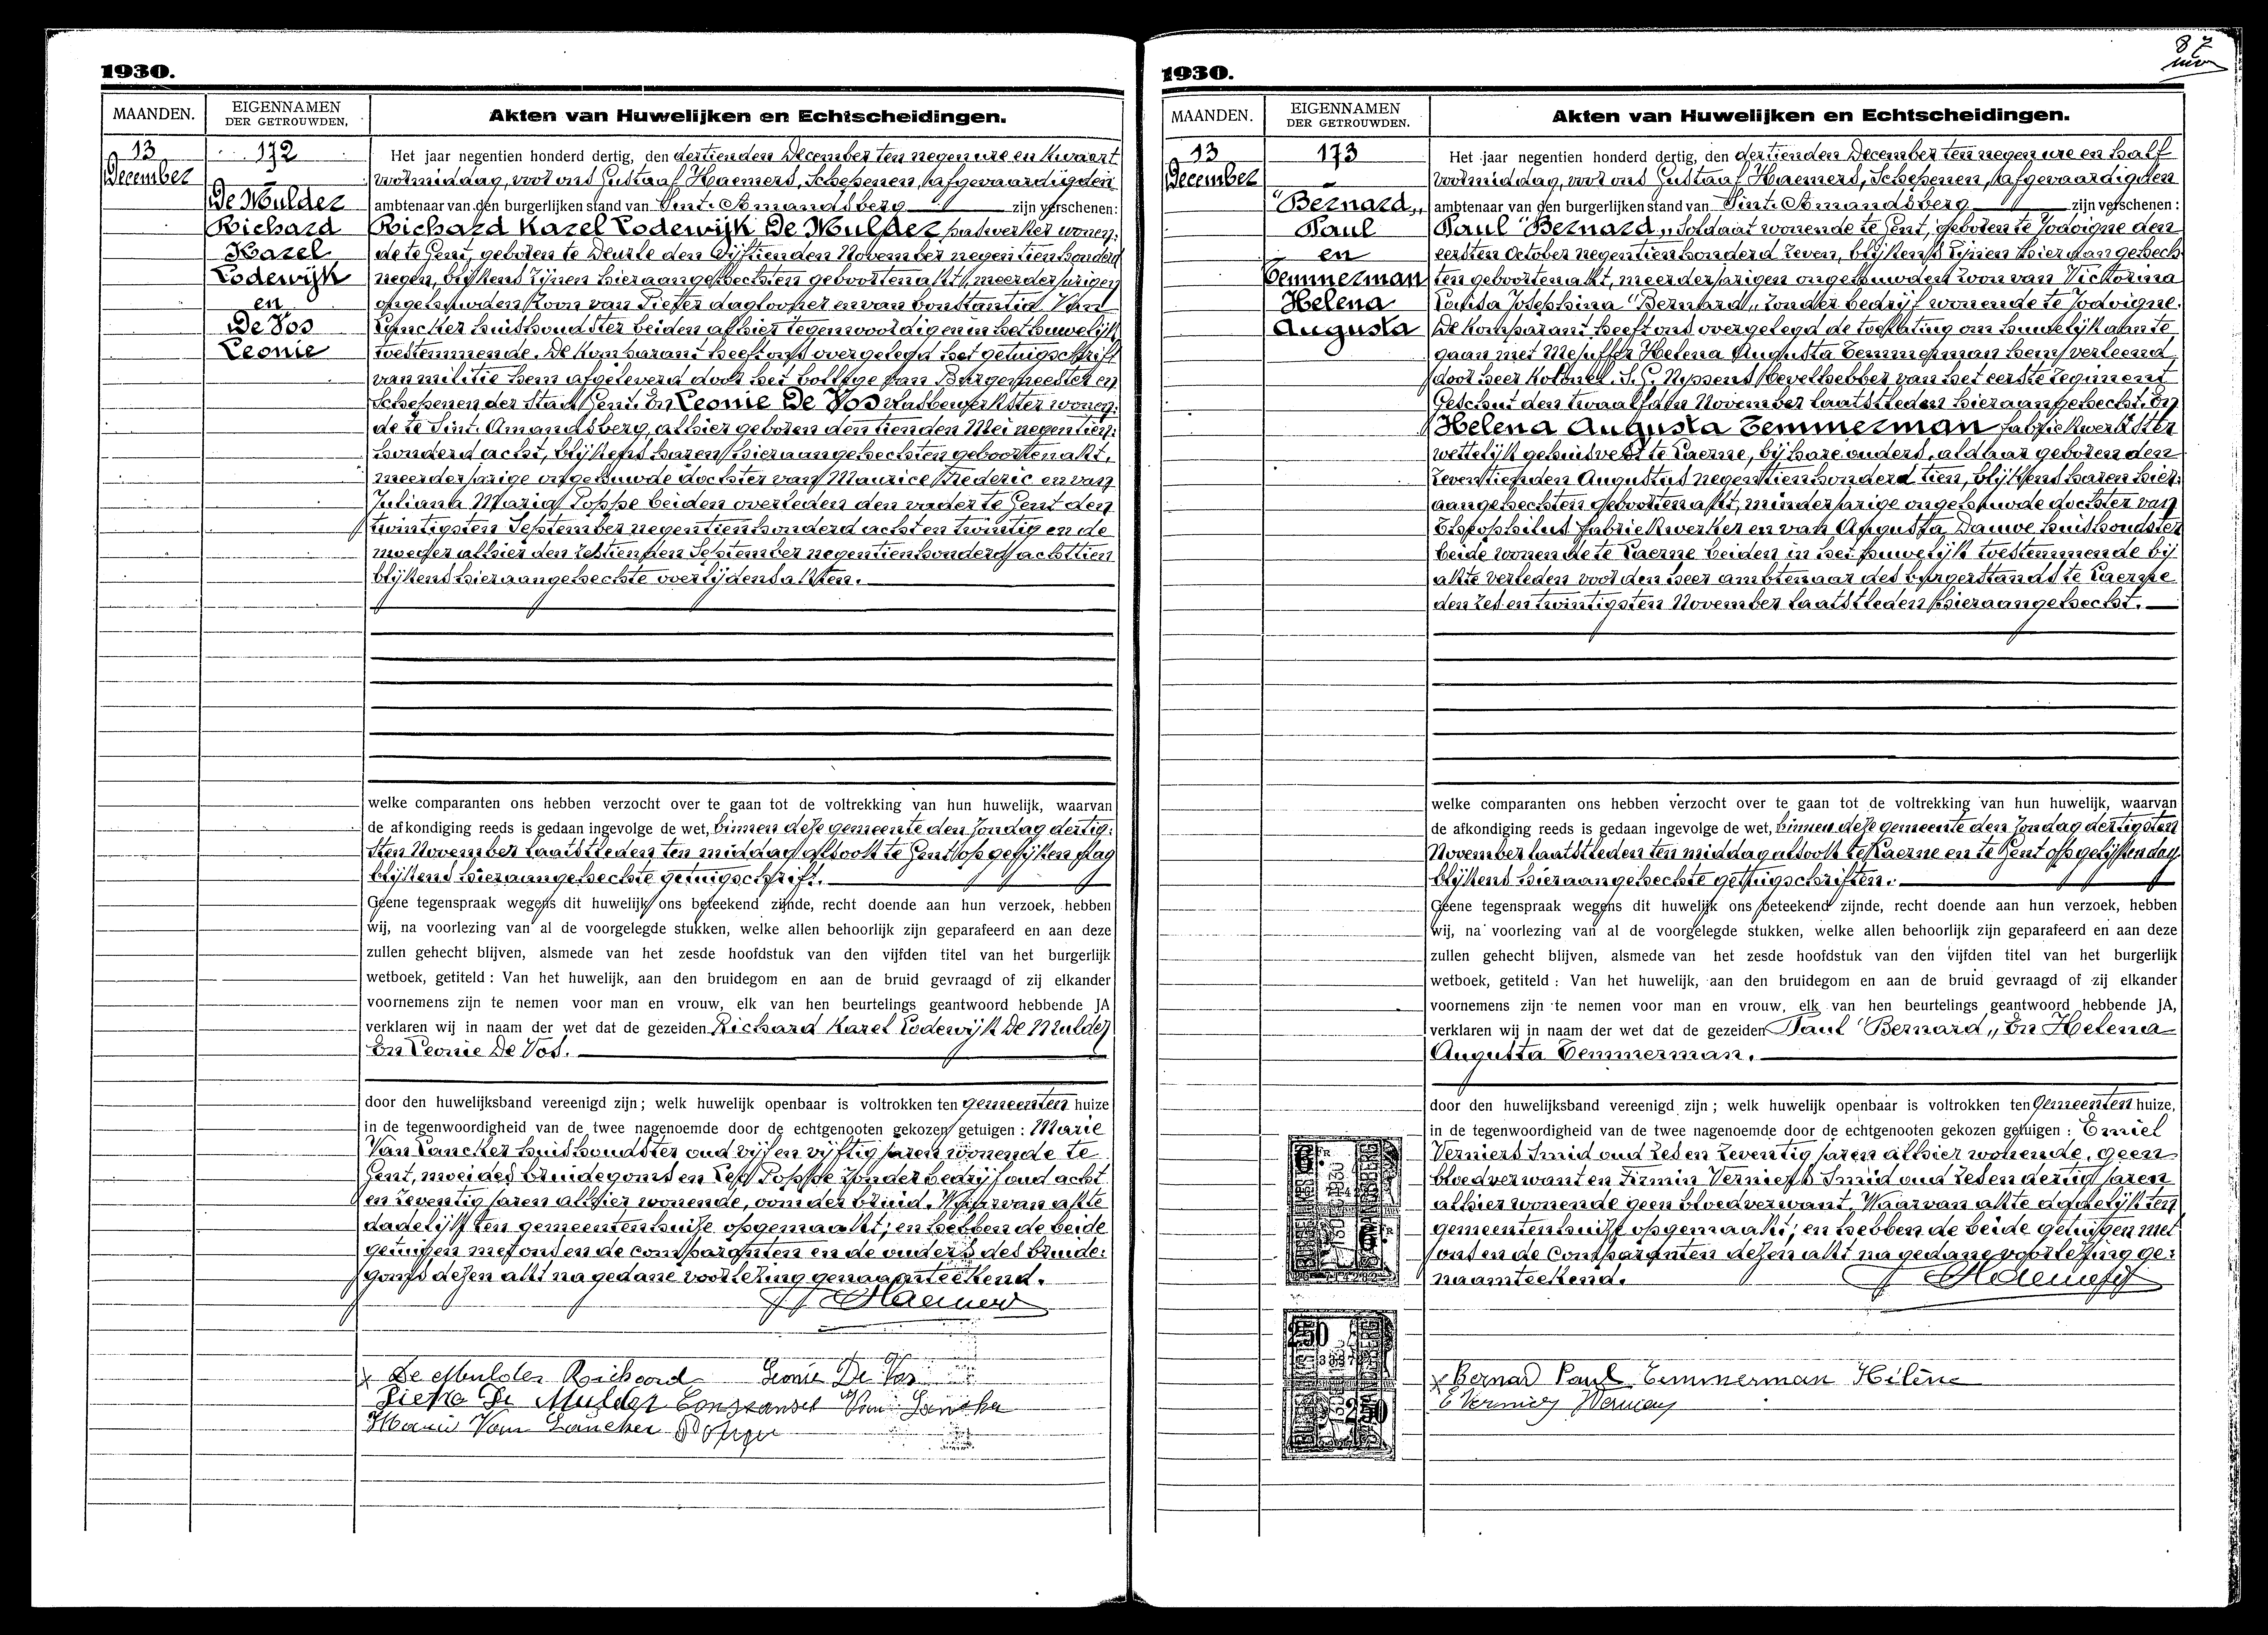 1930.
MAANDEN.
EIGENNAMEN
DER GETROUWDEN.
Akten van Huwelijken en Echtscheidingen.
13
December
172
De Mulder
Richard
Karel
Lodewijk
en
De Vos
Leonie
Het jaar negentien honderd dertig, den dertienden December ten negen ure en kwaart
voormiddag, voor ons Gustaaf Haemers, Schepenen, afgevaardigden
ambtenaar van den burgerlijken stand van Sint-Amandsberg zijn verschenen:
Richard Karel Lodewijk De Mulder wonen-
de te Gent, geboren te Deurle den vijftienden November negentienhonderd
negen, blijkens zijnen hieraangehechten geboortenakt, meerderjarigen
ongehuwden zoon van Pieter daglooner en van Constantia Van
Lancker huishoudster beiden alhier tegenwoordig en in het huwelijk
toestemmende. De komparant heeft ons overgelegd het getuigschrift
van militie hem afgeleverd door het Collège van Burgemeester en
Schepenen der Stad Gent. En Leonie De Vos vlasbewerkster wonen-
de te Sint-Amandsberg, alhier geboren den tienden Mei negentien-
honderd acht, blijkens haren hieraangehechten geboortenakt,
meerderjarige ongehuwde dochter van Maurice Frederic en van
Juliana Maria Poppe beiden overleden den vader te Gent den
twintigsten September negentienhonderd acht en twintig en de
moeder alhier den zestienden September negentienhonderd achttien
blijkens hieraangehechte overlijdensakten.
welke comparanten ons hebben verzocht over te gaan tot de voltrekking van hun huwelijk, waarvan
de afkondiging reeds is gedaan ingevolge de wet, binnen deze gemeente den Zondag dertig-
sten November laatstleden ten middag alsook te Gent op gelijken dag
blijkens hieraangehechte getuigschrift.
Geene tegenspraak wegens dit huwelijk ons beteekend zijnde, recht doende aan hun verzoek, hebben
wij, na voorlezing van al de voorgelegde stukken, welke allen behoorlijk zijn geparafeerd en aan deze
zullen gehecht blijven, alsmede van het zesde hoofdstuk van den vijfden titel van het burgerlijk
wetboek, getiteld: Van het huwelijk, aan den bruidegom en aan de bruid gevraagd of zij elkander
voornemens zijn te nemen voor man en vrouw, elk van hen beurtelings geantwoord hebbende JA
verklaren wij in naam der wet dat de gezeiden Richard Karel Lodewijk De Mulder
En Leonie De Vos.
door den huwelijksband vereenigd zijn; welk huwelijk openbaar is voltrokken ten gemeenten huize
in de tegenwoordigheid van de twee nagenoemde door de echtgenooten gekozen getuigen: Marie
Van Lancker huishoudster oud vijf en vijftig jaren wonende te
Gent, moei des bruidegoms en Poppe zonder bedrijf oud acht
en zeventig jaren alhier wonende, oom der bruid. Waarvan akte
dadelijk ten gemeentenhuize opgemaakt; en hebben de beide
getuigen met ons en de comparanten en de ouders des bruide-
goms dezen akt na gedane voorlezing genaamteekend.
G Haemers
x De Mulder Richard Leonie De Vos
Pieter De Mulder Constansia Van Lancker
Marie Van Lancker Poppe
87
1930.
MAANDEN.
EIGENNAMEN
DER GETROUWDEN.
Akten van Huwelijken en Echtscheidingen.
13
December
173
"Bernard„
Paul
en
Temmerman
Helena
Augusta
Het jaar negentien honderd dertig, den dertienden December ten negen ure en half
voormiddag, voor ons Gustaaf Haemers, Schepenen, afgevaardigden
ambtenaar van den burgerlijken stand van Sint-Amandsberg zijn verschenen:
Paul "Bernard„ Soldaat wonende te Gent, geboren te Jodoigne den
eersten October negentienhonderd zeven, blijkens zijnen hieraangehech-
ten geboortenakt, meerderjarigen ongehuwden zoon van Victorina
Louisa Josephina "Bernard„ zonder bedrijf wonende te Jodoigne.
De komparant heeft ons overgelegd de toelating om huwelijk aan te
gaan met Mejuffer Helena Augusta Temmerman hem verleend
door heer Kolonel S.G. Nyssens bevelhebber van het eerste regiment
Geschut den twaalfden November laatstleden hieraangehecht. En
Helena Augusta Temmerman fabriekwerkster
wettelijk gehuisvest te Laerne, bij hare ouders, aldaar geboren den
zeventienden Augustus negentienhonderd tien, blijkens haren hier-
aangehechten geboortenakt, minderjarige ongehuwde dochter van
Theophilus fabriekwerker en van Augusta Dauwe huishoudster
beide wonende te Laerne beiden in het huwelijk toestemmende bij
akte verleden voor den heer ambtenaar des burgerstands te Laerne
den zes en twintigsten November laatstleden hieraangehecht.
welke comparanten ons hebben verzocht over te gaan tot de voltrekking van hun huwelijk, waarvan
de afkondiging reeds is gedaan ingevolge de wet, binnen deze gemeente den Zondag dertigsten
November laatstleden ten middag alsook te Laerne en te Gent op gelijken dag
blijkens hieraangehechte getuigschriften.
Geene tegenspraak wegens dit huwelijk ons beteekend zijnde, recht doende aan hun verzoek, hebben
wij, na voorlezing van al de voorgelegde stukken, welke allen behoorlijk zijn geparafeerd en aan deze
zullen gehecht blijven, alsmede van het zesde hoofdstuk van den vijfden titel van het burgerlijk
wetboek, getiteld: Van het huwelijk, aan den bruidegom en aan de bruid gevraagd of zij elkander
voornemens zijn te nemen voor man en vrouw, elk van hen beurtelings geantwoord hebbende JA,
verklaren wij in naam der wet dat de gezeiden Paul "Bernard„ En Helena
Augusta Temmerman.
door den huwelijksband vereenigd zijn; welk huwelijk openbaar is voltrokken ten Gemeenten huize,
in de tegenwoordigheid van de twee nagenoemde door de echtgenooten gekozen getuigen: Emiel
Verniers Smid oud zes en zeventig jaren alhier wonende, geen
bloedverwant en Firmin Verniers Smid oud zes en dertig jaren
alhier wonende geen bloedverwant. Waarvan akte dadelijk ten
gemeentenhuize opgemaakt; en hebben de beide getuigen met
ons en de comparanten dezen akt na gedane voorlezing ge-
naamteekend. G Haemers
x Bernard Paul Temmerman Hélène
E Verniers Verniers